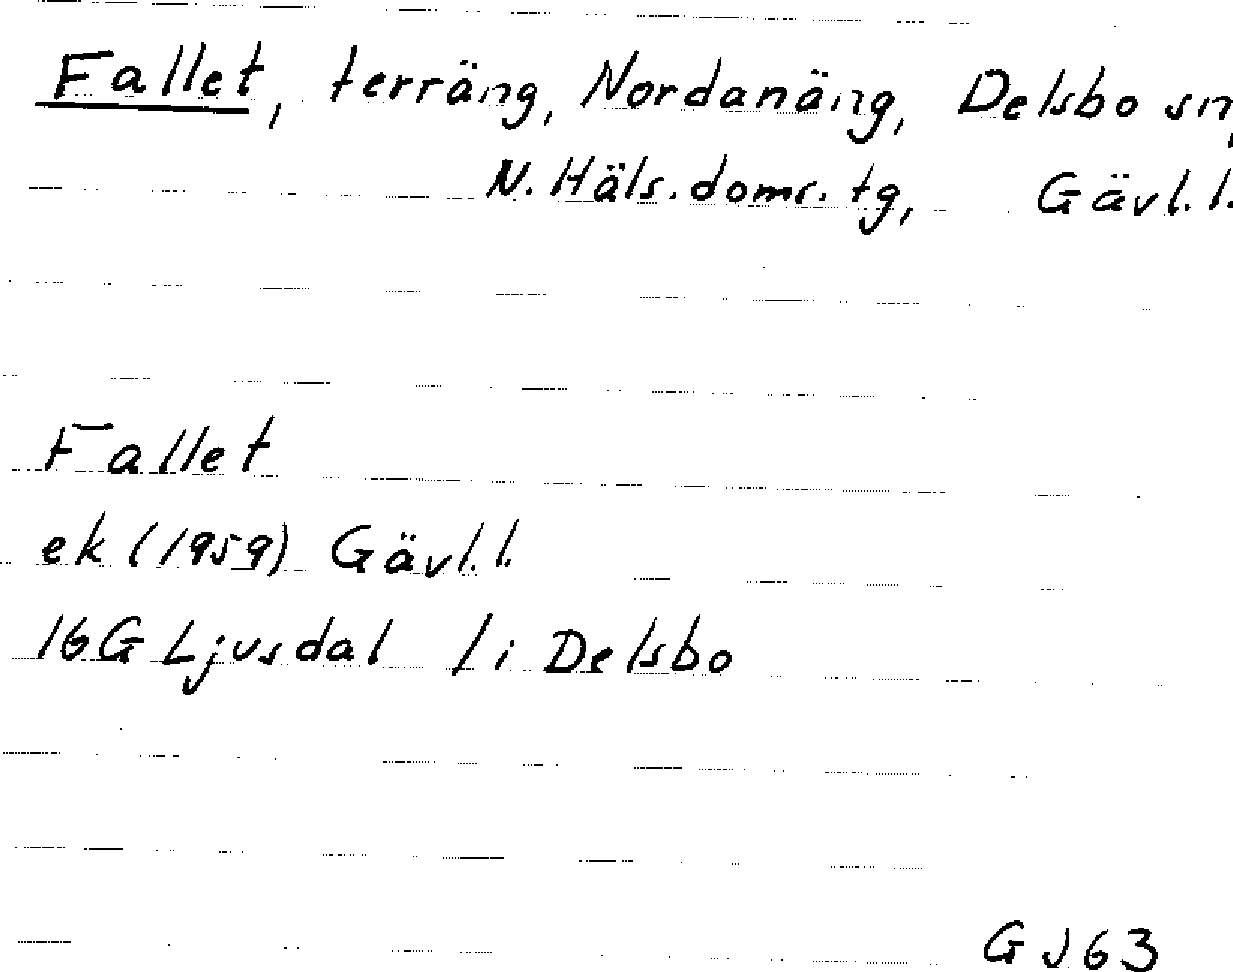 Fallet, terräng, Nordanäng, Delsbo sn,
N. Häls. doms. tg, Gävl. l.
Fallet
ek (1959) Gävl. l.
16G Ljusdal /i Delsbo
GJ63